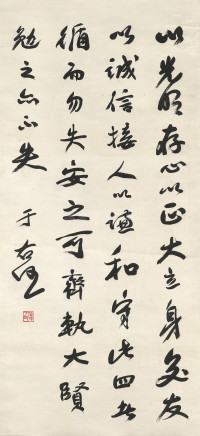 以光明存心以正大立身交友
以誠信接人以謙和守此四者
循而勿失安之可齊執大賢
勉之亦不失
于右任